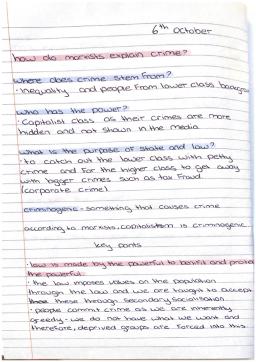 6th October
how do marxists explain crime?
where does crime stem from?
• Inequality and people from lower class backgrou
who has the power?
• Capitalist class as their crimes are more
hidden and not shown in the media
what is the purpose of state and law?
• to catch out the lower class with petty
crime and for the higher class to get away
with bigger crimes such as tax fraud
(corporate crime)
criminogenic - something that causes crime
according to marxists, capitalism is criminogenic
key points
• law is made by the powerful to benifit and prote
the powerful.
• the law imposes values on the population
through the law and we are taught to accept
these through secondary socialisation
• people commit crime as we are inherently
greedy - we do not have what we want and
therefore, deprived groups are forced into this